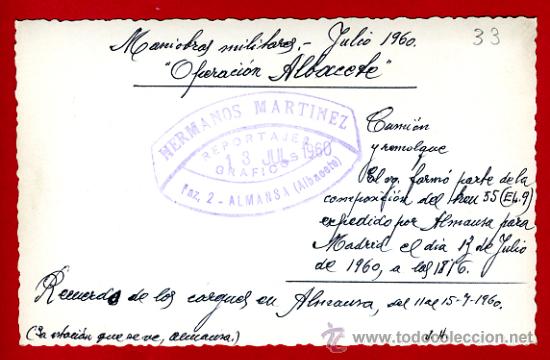 Maniobras militares.- Julio 1960.
33
"Operación Albacete"
HERMANOS MARTINEZ
REPORTAJES
13 JUL 1960
GRAFICOS
Paz, 2 - ALMANSA (Albacete)
Camión
y remolque
El vg. formó parte de la
composición del tren 55 (EL.9)
expedido por Almansa para
Madrid el día 13 de Julio
de 1960, a las
Recuerdo de los cargues en Almansa, del 11 al 15-7-1960.
(La estación que se ve, Almansa.)
todocoleccion.net